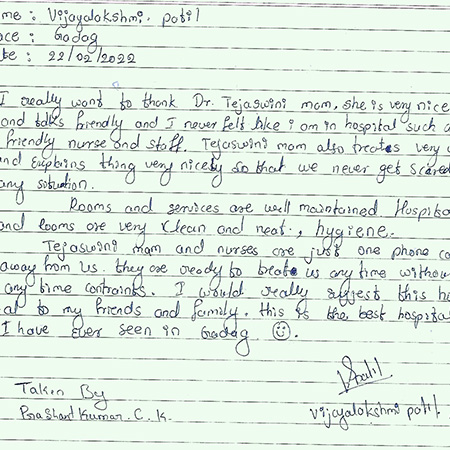 me : Vijayalakshmi. patil
ace : Gadag
te : 22/02/2022
I really want to thank Dr. Tejaswini mam, she is very nice
and talks friendly and I never felt like i am in hospital such a
friendly nurse and staff. Tejaswini mam also treates very
and explains thing very nicely so that we never get scared
any situation.
Rooms and services are well maintained Hospita
and rooms are very clean and neat., hygiene.
Tejaswini mam and nurses are just one phone ca
away from us. they are ready to treate us any time withou
any time contraints. I would really suggest this ho
al to my friends and family. this is the best hospita
I have ever seen in Gadag ☺.
Taken By
Prashant Kumar. C. K.
VPatil
Vijayalakshmi patil